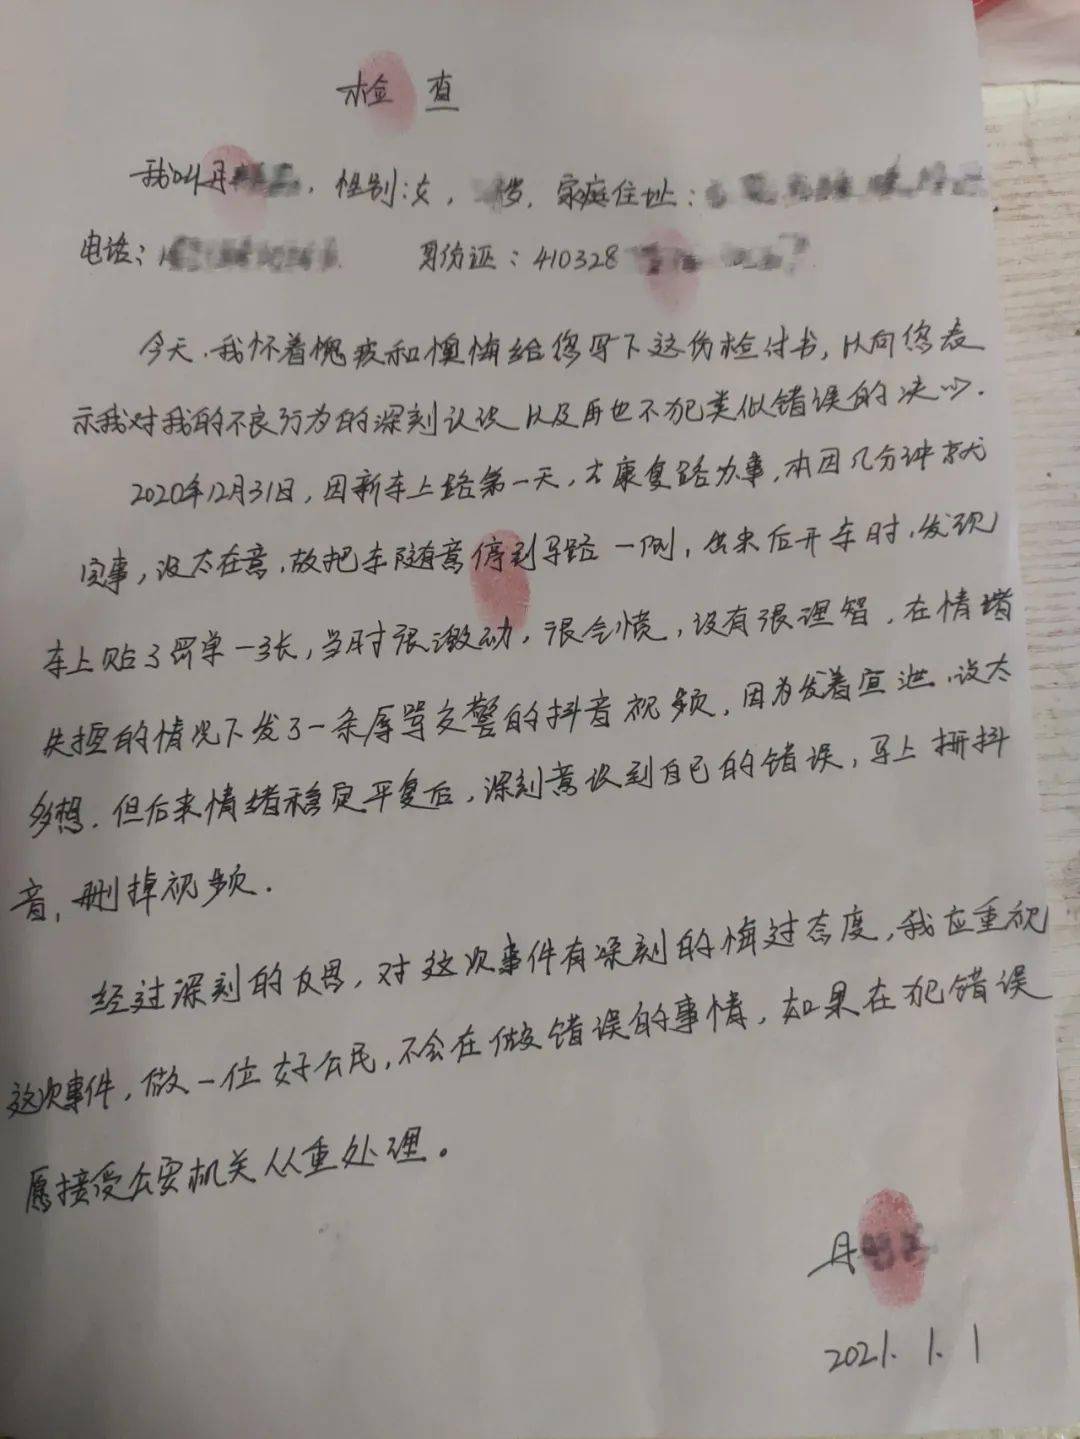 检查
我叫丹 ，性别:女， 岁，家庭住址：
电话：1 身份证：410328
今天，我怀着愧疚和懊悔给您写下这份检讨书，以向您表
示我对我的不良行为的深刻认识以及再也不犯类似错误的决心.
2020年12月31日，因新车上路第一天，去康复路办事，本因几分钟就
完事，没太在意，故把车随意停到马路一侧，出来后开车时，发现
车上贴了罚单一张，当时很激动，很气愤，没有很理智，在情绪
失控的情况下发了一条辱骂交警的抖音视频，因为发着宣泄，没太
多想，但后来情绪稳定平复后，深刻意识到自己的错误，马上 抖
音，删掉视频.
经过深刻的反思，对这次事件有深刻的悔过态度，我应重视
这次事件，做一位好公民，不会在做错误的事情，如果在犯错误
愿接受公安机关从重处理。
丹
2021.1.1